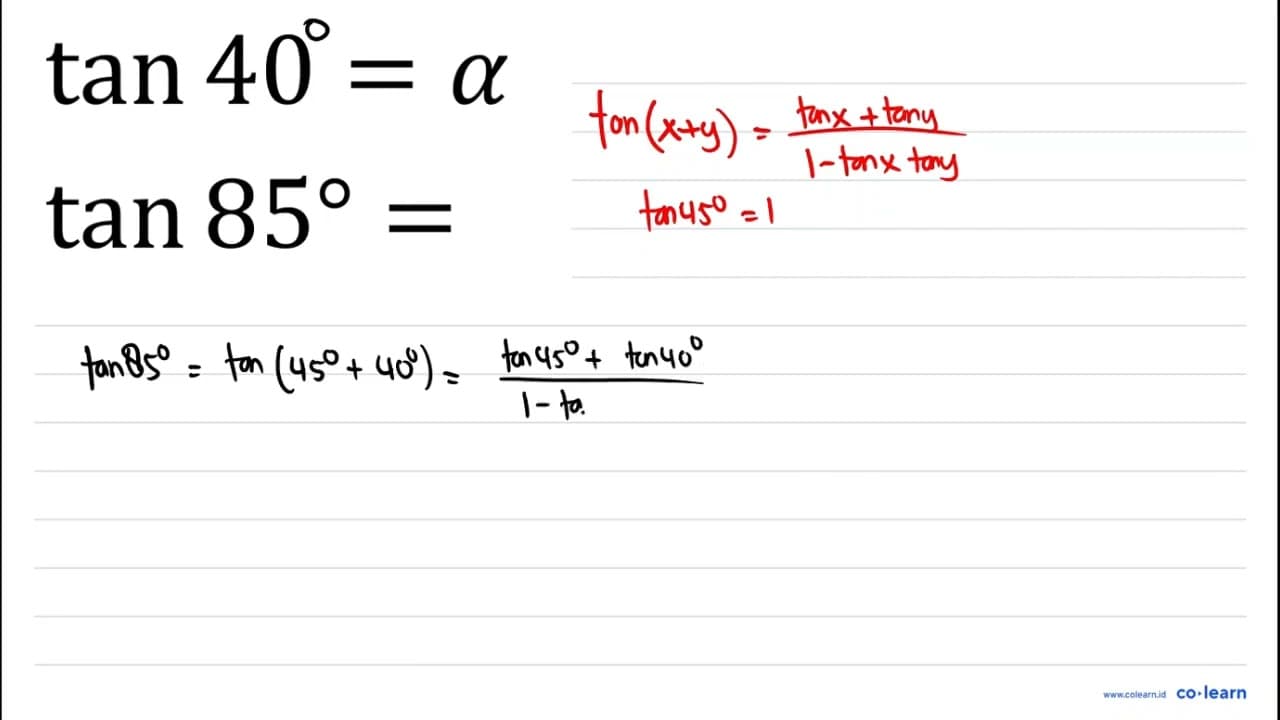 tan 40° = α
tan(x+y) = tanx + tany / 1 - tanx tany
tan 85° =
tan45° = 1
tan85° = tan(45° + 40°) = tan45° + tan40° / 1 - ta
www.colearn.id co·learn